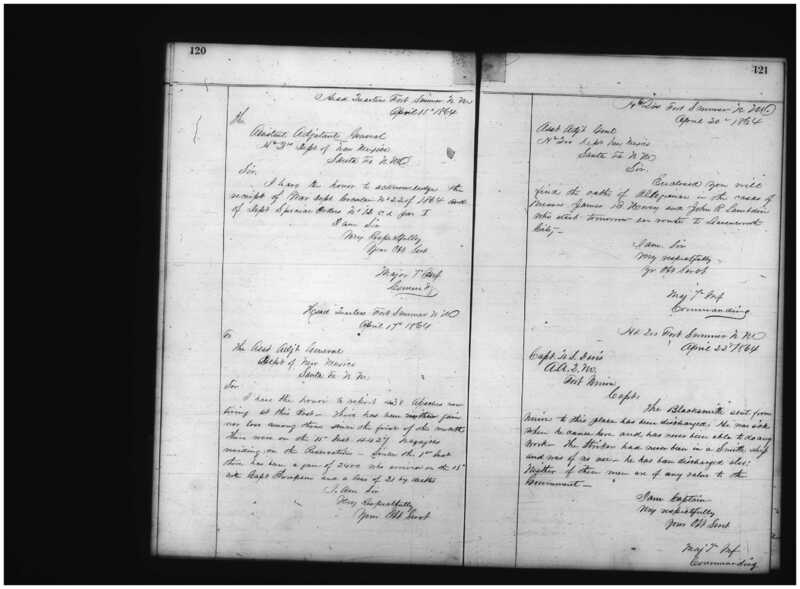 120
Head Quarters Fort Sumner N. M.
April 11th 1864
The
Assistant Adjutant General
Hd Qrs Dept of New Mexico
Santa Fe N. M.
Sir.
I have the honor to acknowledge the
receipt of War Dept Circular No 22 of 1864 and
of Dept Special Orders No 12 c.s. par I
I am Sir
Very Respectfully
Your Obt Servt
Major 7th Inf
Comm'd'g
Head Quarters Fort Sumner N. M.
April 17th 1864
To
The Asst Adj't General
Dept of New Mexico
Santa Fe N. M.
Sir.
I have the honor to report 438 Apaches now
living at this Post - There has been neither gain
nor loss among them since the first of the month
There were on the 15th Inst. Navajoes
residing on the Reservation - Since the 1st Inst
there has been a gain of 2400 who arrived on the
with Capt Thompson and a loss of 21 by deaths
I Am Sir
Very Respectfully
Your Obt Servt
121
Hd Qrs Fort Sumner N. M.
April 20th 1864
Asst Adj't Genl
Hd Qrs Dept New Mexico
Santa Fe N. M.
Sir.
Enclosed you will
find the oaths of Allegiance in the cases of
Messrs James and John R.
who start tomorrow en route to Leavenworth
City -
I am Sir
Very respectfully
Yr Obt Servt
Maj 7th Inf
Commanding
Hd Qrs Fort Sumner N. M.
April 22d 1864
Capt. Davis
A. A. Q. M.
Fort Union
Capt:
The Blacksmith sent from
Union to this place has been discharged. He was sick
when he came here and has never been able to do any
work - The Striker had never been in a Smith shop
and was of no use - he has been discharged also.
Neither of these men are of any value to the
Government -
I am Captain
Very respectfully
Your Obt Servt
Maj 7th Inf
Commanding